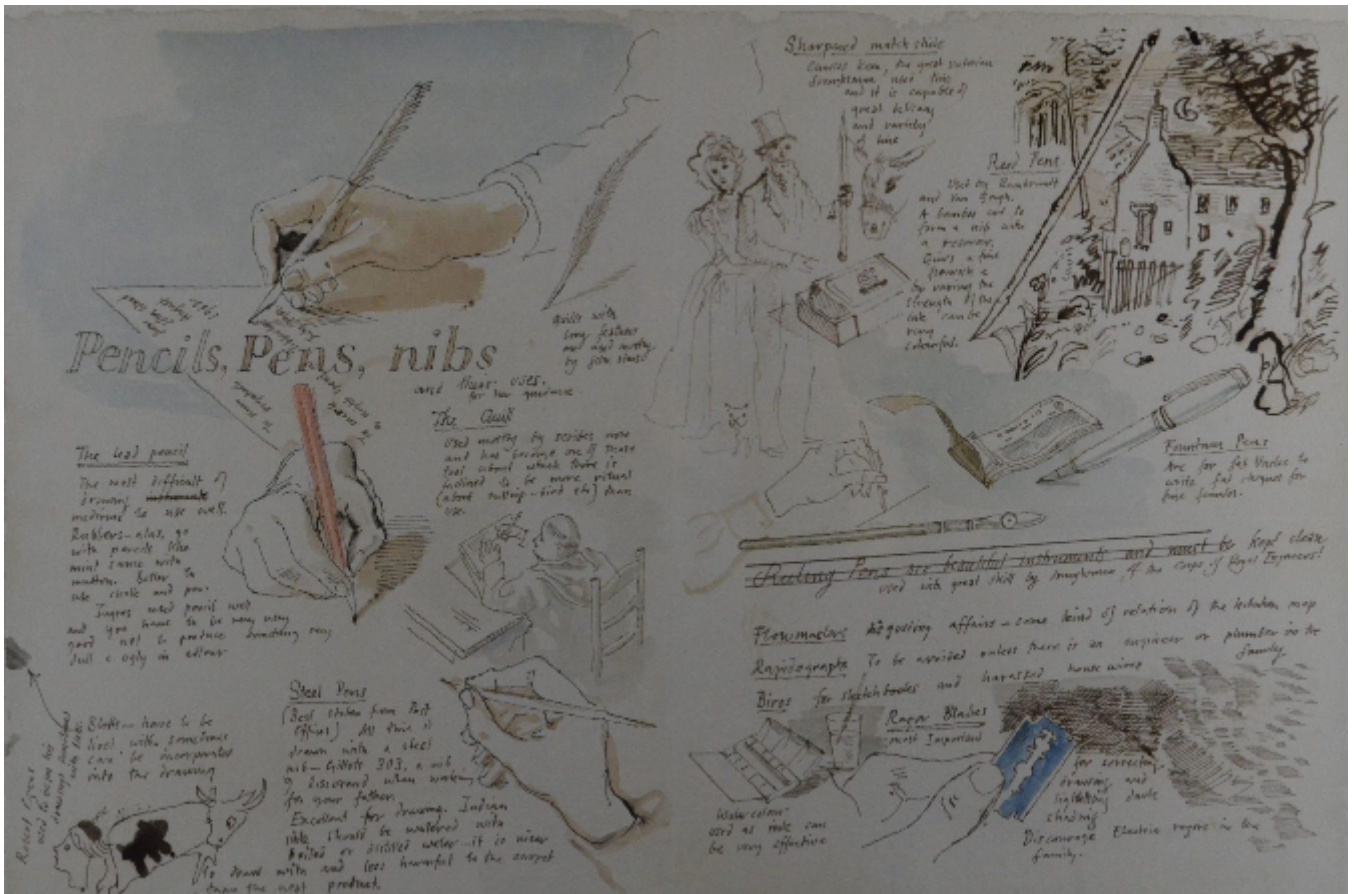 Pencils, Pens, nibs
and their uses.
for your guidance
Quills with
long feathers
are used mostly
by film stars!
The lead pencil
The most difficult of
drawing
mediums to use well.
Rubbers—alas, go
with pencils like
mint sauce with
mutton. Better to
use chalk and pen.
Ingres used pencil well
and you have to be very very
good not to produce something very
dull & ugly in colour
The Quill
Used mostly by scribes now
and has become one of those
tool about which there is
inclined to be more ritual
(about cutting—bird etc) than
use.
Steel Pens
(Best stolen from Post
Offices) All this is
drawn with a steel
nib—Gillott 303, a nib
I discovered when working
for your father.
Excellent for drawing. Indian
ink should be watered with
boiled or distilled water—it is nicer
to draw with and less harmful to the carpet
than the neat product.
Blots—have to be
lived with sometimes
can be incorporated
into the drawing
used to wipe his
drawings sometimes
with
Sharpened match stick
Charles Keen, the great victorian
draughtsman used this
and it is capable of
great delicacy
and variety
of line
Reed Pens
Used by Rembrandt
and Van Gogh.
A bamboo cut to
form a nib with
a reservoir.
Gives a fine
flourish &
by varying the
strength of the
ink can be
very
colourful.
Fountain Pens
Are for fat Uncles to
write fat cheques for
fine females.
Ruling Pens are beautiful instruments and must be kept clean
used with great skill by draughtsmen of the corps of Royal Engineers!
Flowmasters Disgusting affairs—some kind of relation of the
Rapidographs To be avoided unless there is an engineer or plumber in the
family.
Biros for sketchbooks and harassed housewives
Razor Blades
most Important
for correcting
drawing and
lightening dark
shading
Discourage Electric razors in the
family.
Water colour
used as ink can
be very effective